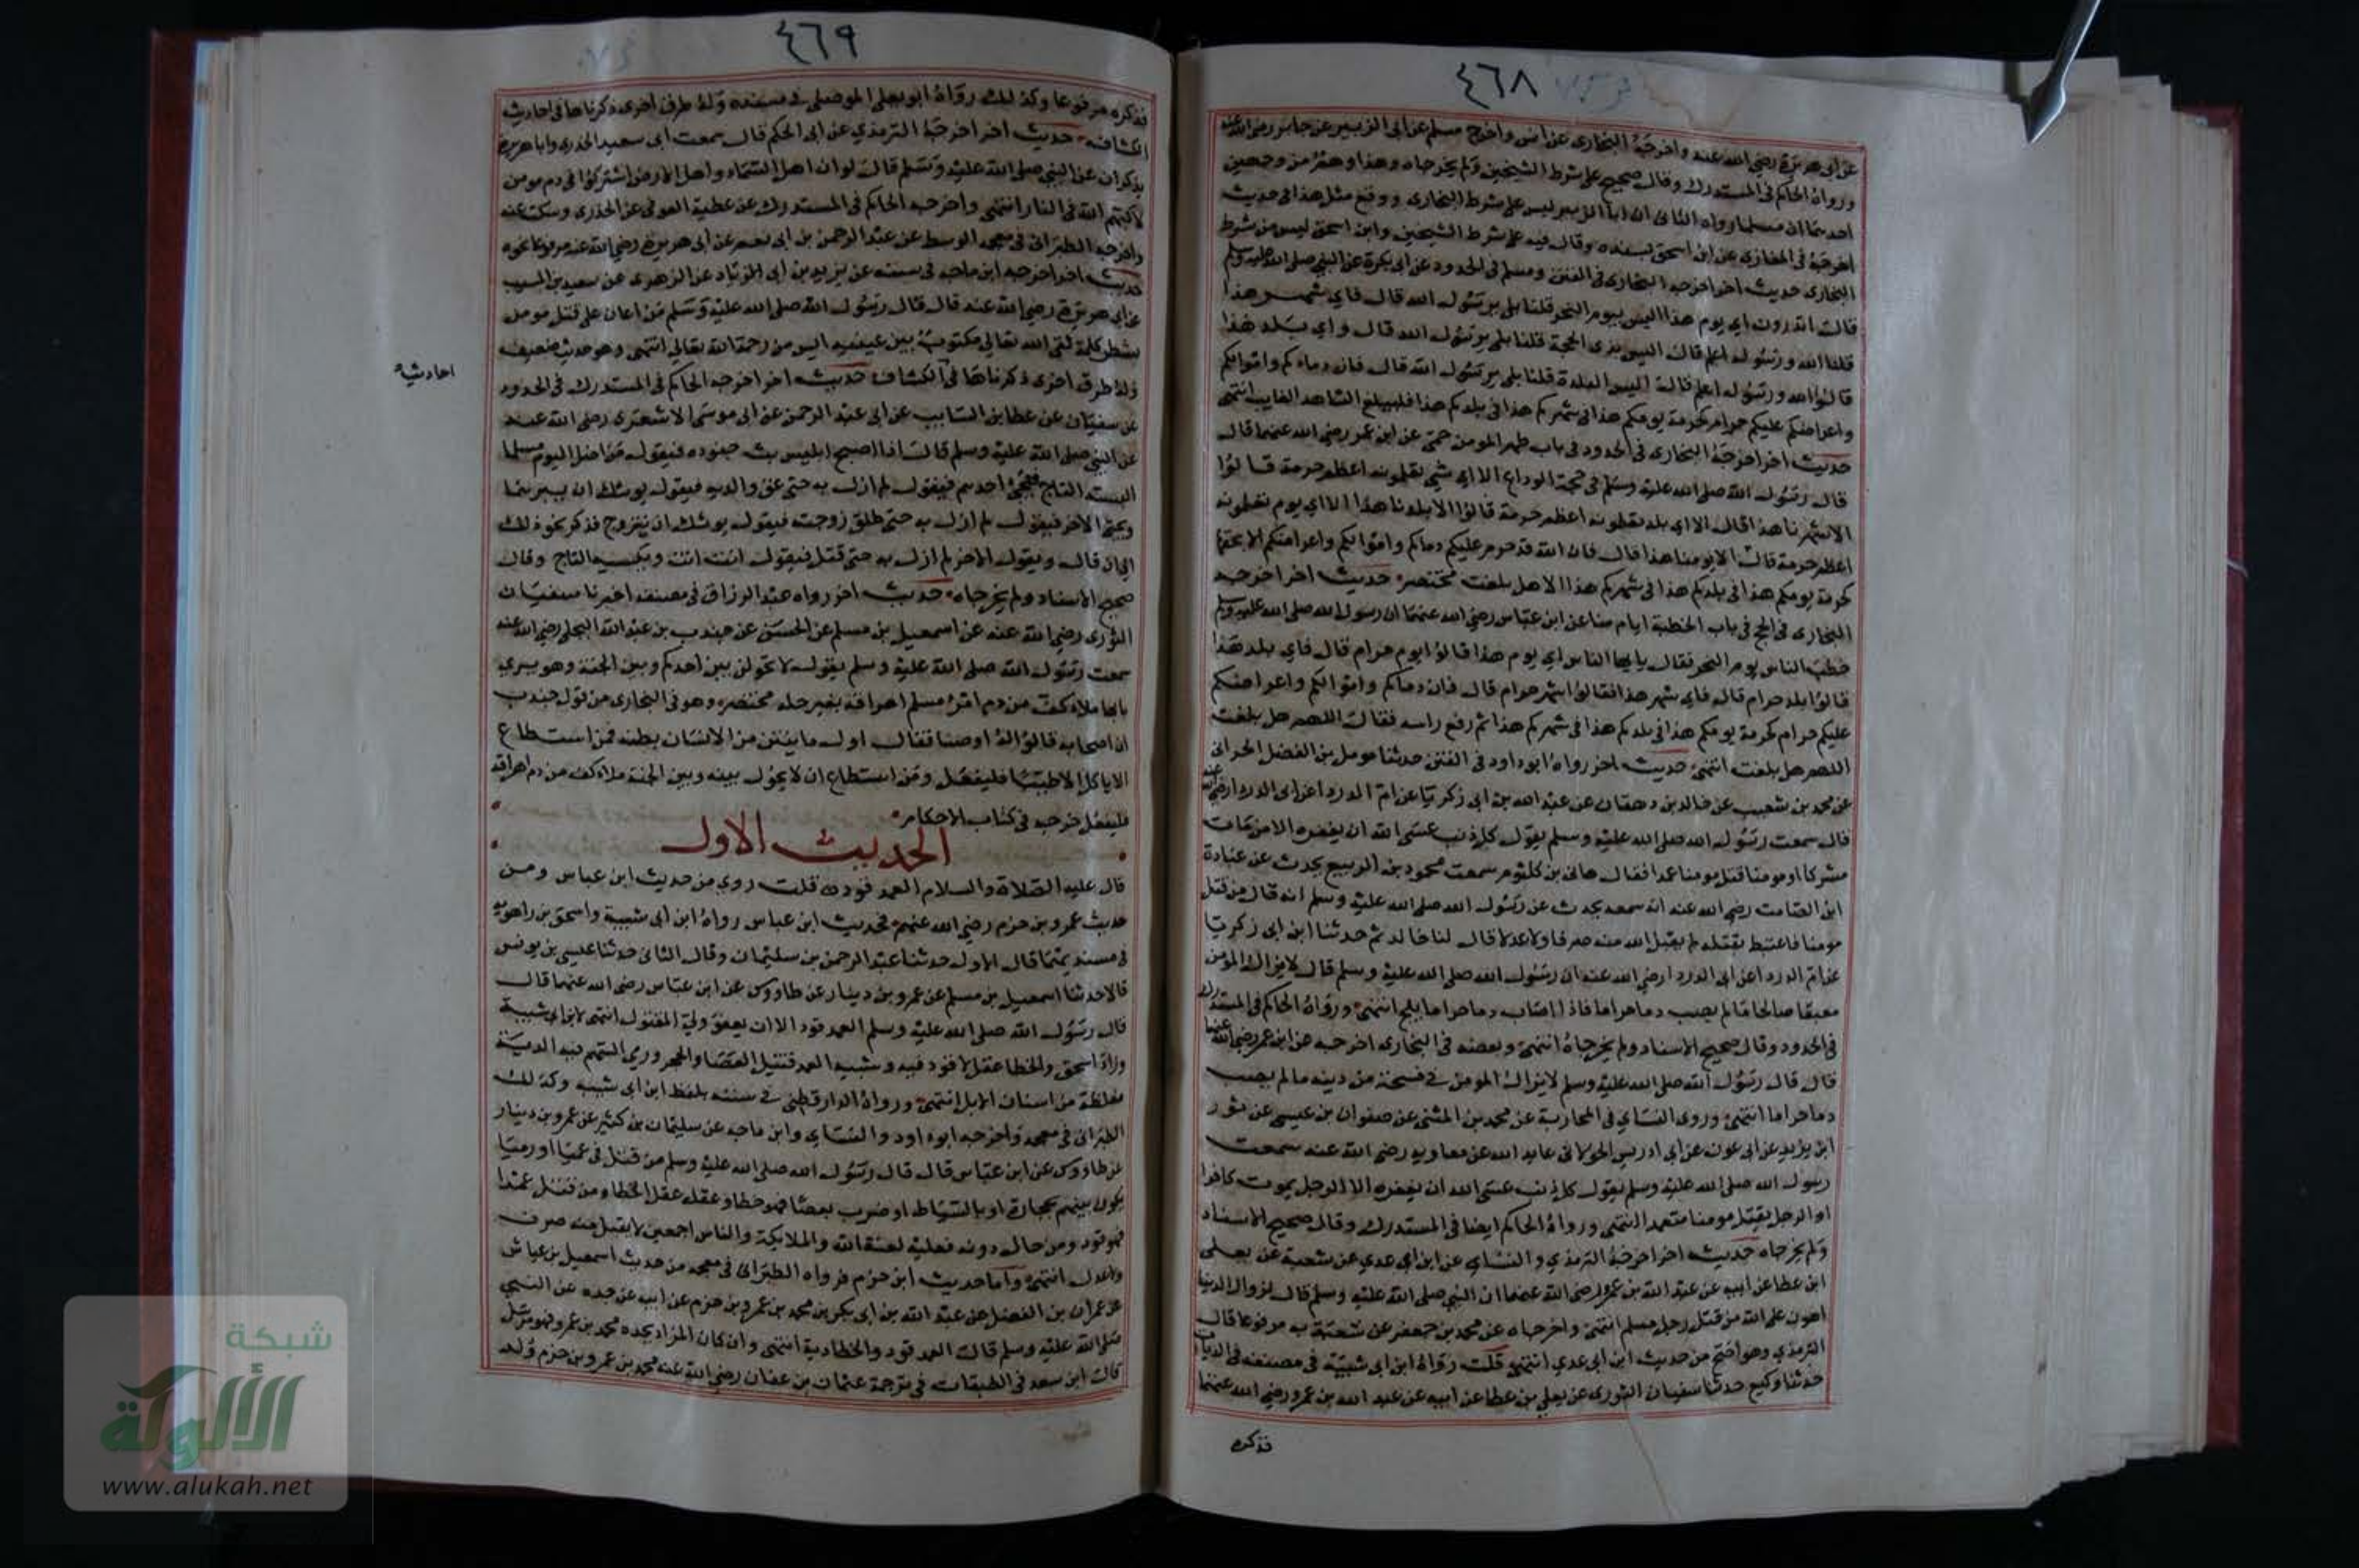 ٤٦٨
عن ابى هريرة رضي الله عنه واخرجه البخارى عن انس واخرج مسلم عن ابى الزبير عن جابر رضى الله عنه
ورواه الحاكم فى المستدرك وقال صحيح على شرط الشيخين ولم يخرجاه وهذا وهم من وجهين
احدهما ان مسلما رواه الثانى ان ابا الزبير ليس على شرط البخارى ووقع مثل هذا فى حديث
اخرجه فى المغازى عن ابن اسحق بسنده وقال فيه على شرط الشيخين وابن اسحق ليس من شرط
البخارى حديث اخر اخرجه البخارى فى الفتن ومسلم فى الحدود عن ابى بكرة عن النبي صلى الله عليه وسلم
قال اتدرون اي يوم هذا اليس بيوم النحر قلنا بلى يرسول الله قال فاي شهر هذا
قلنا الله ورسوله اعلم قال اليس بذى الحجة قلنا بلى يرسول الله قال واي بلد هذا
قالوا الله ورسوله اعلم قال اليس البلدة قلنا بلى يرسول الله قال فان دماءكم واموالكم
واعراضكم عليكم حرام كحرمة يومكم هذا فى شهركم هذا فى بلدكم هذا فليبلغ الشاهد الغايب انتهى
حديث اخر اخرجه البخارى فى الحدود فى باب ظهر المومن حمى عن ابن عمر رضي الله عنهما قال
قال رسول الله صلى الله عليه وسلم فى حجة الوداع الا اي شهر تعلمونه اعظم حرمة قالوا
الا شهرنا هذا قال الا اي بلد تعلمونه اعظم حرمة قالوا الا بلدنا هذا الا اي يوم تعلمونه
اعظم حرمة قال الا يومنا هذا قال فان الله قد حرم عليكم دماكم واموالكم واعراضكم الا بحقها
كحرمة يومكم هذا فى بلدكم هذا فى شهركم هذا الا هل بلغت مختصر حديث اخر اخرجه
البخارى فى الحج فى باب الخطبة ايام منا عن ابن عباس رضي الله عنهما ان رسول الله صلى الله عليه وسلم
خطب الناس يوم النحر فقال يايها الناس اي يوم هذا قالوا يوم حرام قال فاي بلد هذا
قالوا بلد حرام قال فاي شهر هذا فقالوا شهر حرام قال فان دماكم واموالكم واعراضكم
عليكم حرام كحرمة يومكم هذا فى بلدكم هذا فى شهركم هذا ثم رفع راسه فقال اللهم هل بلغت
اللهم هل بلغت انتهى حديث اخر رواه ابو داود فى الفتن حدثنا مومل بن الفضل الحرانى
عن محمد بن شعيب عن خالد بن دهقان عن عبد الله بن ابى زكريا عن ام الدرداء عن ابى الدرداء رضى الله عنه
قال سمعت رسول الله صلى الله عليه وسلم يقول كل ذنب عسى الله ان يغفره الا من مات
مشركا او مومنا قتل مومنا عمدا فقال هانى بن كلثوم سمعت محمود بن الربيع يحدث عن عبادة
ابن الصامت رضي الله عنه انه سمعه يحدث عن رسول الله صلى الله عليه وسلم انه قال من قتل
مومنا فاعتبط بقتله لم يقبل الله منه صرفا ولا عدلا قال لنا خالد ثم حدثنا ابن ابى زكريا
عن ام الدرداء عن ابى الدرداء رضي الله عنه ان رسول الله صلى الله عليه وسلم قال لا يزال المومن
معنقا صالحا ما لم يصب دما حراما فاذا اصاب دما حراما بلح انتهى ورواه الحاكم فى المستدرك
فى الحدود وقال صحيح الاسناد ولم يخرجاه انتهى وبعضه فى البخارى اخرجه عن ابن عمر رضي الله عنهما
قال قال رسول الله صلى الله عليه وسلم لا يزال المومن فى فسحة من دينه ما لم يصب
دما حراما انتهى وروى النساي فى المحاربة عن محمد بن المثنى عن صفوان بن عيسى عن ثور
ابن يزيد عن ابى عون عن ابى ادريس الخولانى عايد الله عن معاوية رضى الله عنه سمعت
رسول الله صلى الله عليه وسلم يقول كل ذنب عسى الله ان يغفره الا الرجل يموت كافرا
او الرجل يقتل مومنا متعمدا انتهى ورواه الحاكم ايضا فى المستدرك وقال صحيح الاسناد
ولم يخرجاه حديث اخر اخرجه الترمذي والنساي عن ابن ابى عدي عن شعبة عن يعلى
ابن عطا عن ابيه عن عبد الله بن عمرو رضى الله عنهما ان النبي صلى الله عليه وسلم قال لزوال الدنيا
اهون على الله من قتل رجل مسلم انتهى واخرجاه عن محمد بن جعفر عن شعبة به موقوفا قال
الترمذي وهو اصح من حديث ابن ابى عدي انتهى قلت رواه ابن ابى شيبة فى مصنفه فى الديات
حدثنا وكيع حدثنا سفيان الثورى عن يعلى بن عطا عن ابيه عن عبد الله بن عمرو رضي الله عنهما
فذكره
٤٦٩
فذكره مرفوعا وكذلك رواه ابو يعلى الموصلى فى مسنده وله طرق اخرى ذكرناها فى احاديث
الكشاف حديث اخر اخرجه الترمذي عن ابى الحكم قال سمعت ابى سعيد الخدرى وابا هريرة
يذكران عن النبي صلى الله عليه وسلم قال لو ان اهل السماء واهل الارض اشتركوا فى دم مومن
لاكبهم الله فى النار انتهى واخرجه الحاكم فى المستدرك عن عطية العوفى عن الخذرى وسكت عنه
واخرجه الطبرانى فى معجمه الوسط عن عبد الرحمن بن ابى نعم عن ابى هريرة رضي الله عنه مرفوعا نحوه
حديث اخر اخرجه ابن ماجه فى سننه عن يزيد بن ابى الزياد عن الزهرى عن سعيد بن المسيب
عن ابى هريرة رضي الله عنه قال قال رسول الله صلى الله عليه وسلم من اعان على قتل مومن
بشطر كلمة لقى الله تعالى مكتوب بين عينيه ايس من رحمة الله تعالى انتهى وهو حديث ضعيف
احاديث
وله طرق اخرى ذكرناها فى الكشاف حديث اخر اخرجه الحاكم فى المستدرك فى الحدود
عن سفيان عن عطا بن السايب عن ابى عبد الرحمن عن ابى موسى الاشعرى رضى الله عنه
عن النبي صلى الله عليه وسلم قال اذا اصبح ابليس بث جنوده فيقول من اضل اليوم مسلما
البسته التاج فيجئ احدهم فيقول لم ازل به حتى عق والديه فيقول يوشك ان يبرهما
ويجئ الاخر فيقول لم ازل به حتى طلق زوجته فيقول يوشك ان يتزوج فذكر نحو ذلك
الى ان قال ويقول الاخر لم ازل به حتى قتل فيقول انت انت ويلبسه التاج وقال
صحيح الاسناد ولم يخرجاه حديث اخر رواه عبد الرزاق فى مصنفه اخبرنا سفيان
الثورى رضي الله عنه عن اسمعيل بن مسلم عن الحسن عن جندب بن عبد الله البجلى رضي الله عنه
سمعت رسول الله صلى الله عليه وسلم يقول لا تحولن بين احدكم وبين الجنة وهو يرى
بابها ملء كف من دم امرئ مسلم اهراقه بغير حله مختصر وهو فى البخارى من قول جندب
ان اصحابه قالوا له اوصنا فقال اول ما ينتن من الانسان بطنه فمن استطاع
الا ياكل الا طيبا فليفعل ومن استطاع ان لا يحول بينه وبين الجنة ملء كف من دم اهراقه
فليفعل خرجه فى كتاب الاحكام
الحديث الاول
قال عليه الصلاة والسلام العمد قود قلت روي من حديث ابن عباس ومن
حديث عمرو بن حزم رضي الله عنهم فحديث ابن عباس رواه ابن ابى شيبة واسحق بن راهويه
فى مسنديهما قال الاول حدثنا عبد الرحمن بن سليمان وقال الثانى حدثنا عيسى بن يونس
قالا حدثنا اسمعيل بن مسلم عن عمرو بن دينار عن طاووس عن ابن عباس رضى الله عنهما قال
قال رسول الله صلى الله عليه وسلم العمد قود الا ان يعفو ولي المقتول انتهى لابن ابى شيبة
وزاد اسحق والخطا عقل لا قود فيه وشبه العمد قتيل العصا والحجر ورمي السهم فيه الدية
مغلظة من اسنان الابل انتهى ورواه الدارقطنى فى سننه بلفظ ابن ابى شيبه وكذلك
الطبرانى فى معجمه واخرجه ابو داود والنساي وابن ماجه عن سليمان بن كثير عن عمرو بن دينار
عن طاووس عن ابن عباس قال قال رسول الله صلى الله عليه وسلم من قتل فى عميا او رميا
يكون بينهم بحجارة او بالسياط او ضرب بعصا فهو خطا وعقله عقل الخطا ومن قتل عمدا
فهو قود ومن حال دونه فعليه لعنة الله والملايكة والناس اجمعين لا يقبل منه صرف
ولا عدل انتهى واما حديث ابن حزم فرواه الطبرانى فى معجمه من حديث اسمعيل بن عياش
عن عمران بن الفضل عن عبد الله بن ابى بكر بن محمد بن عمرو بن حزم عن ابيه عن جده عن النبي
صلى الله عليه وسلم قال العمد قود والخطا دية انتهى وان كان المراد بجده محمد بن عمرو فهو مرسل
قال ابن سعد فى الطبقات فى ترجمة عثمان بن عفان رضي الله عنه محمد بن عمرو بن حزم ولد
شبكة
الألوكة
www.alukah.net